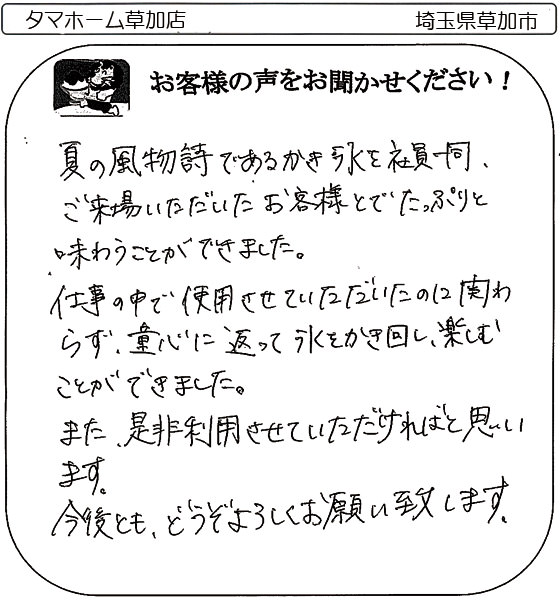 タマホーム草加店
埼玉県草加市
お客様の声をお聞かせください！
夏の風物詩であるかき氷を社員一同、
ご来場いただいたお客様とでたっぷりと
味わうことができました。
仕事の中で使用させていただいたのに関わ
らず、童心に返って氷をかき回し、楽しむ
ことができました。
また、是非利用させていただければと思い
ます。
今後とも、どうぞよろしくお願い致します。